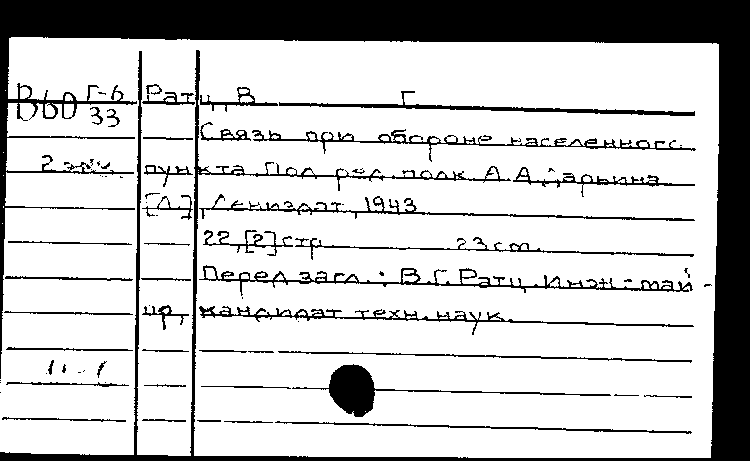 В60 Г-6
33
Ратц, В Г
Связь при обороне населенного
2 экз. пункта. Под ред. полк. А.А.
[Л.], Лениздат, 1943
22,[2] стр 23 cm.
Перед загл.: В.Г. Ратц. Инж-май-
ор, кандидат техн. наук.